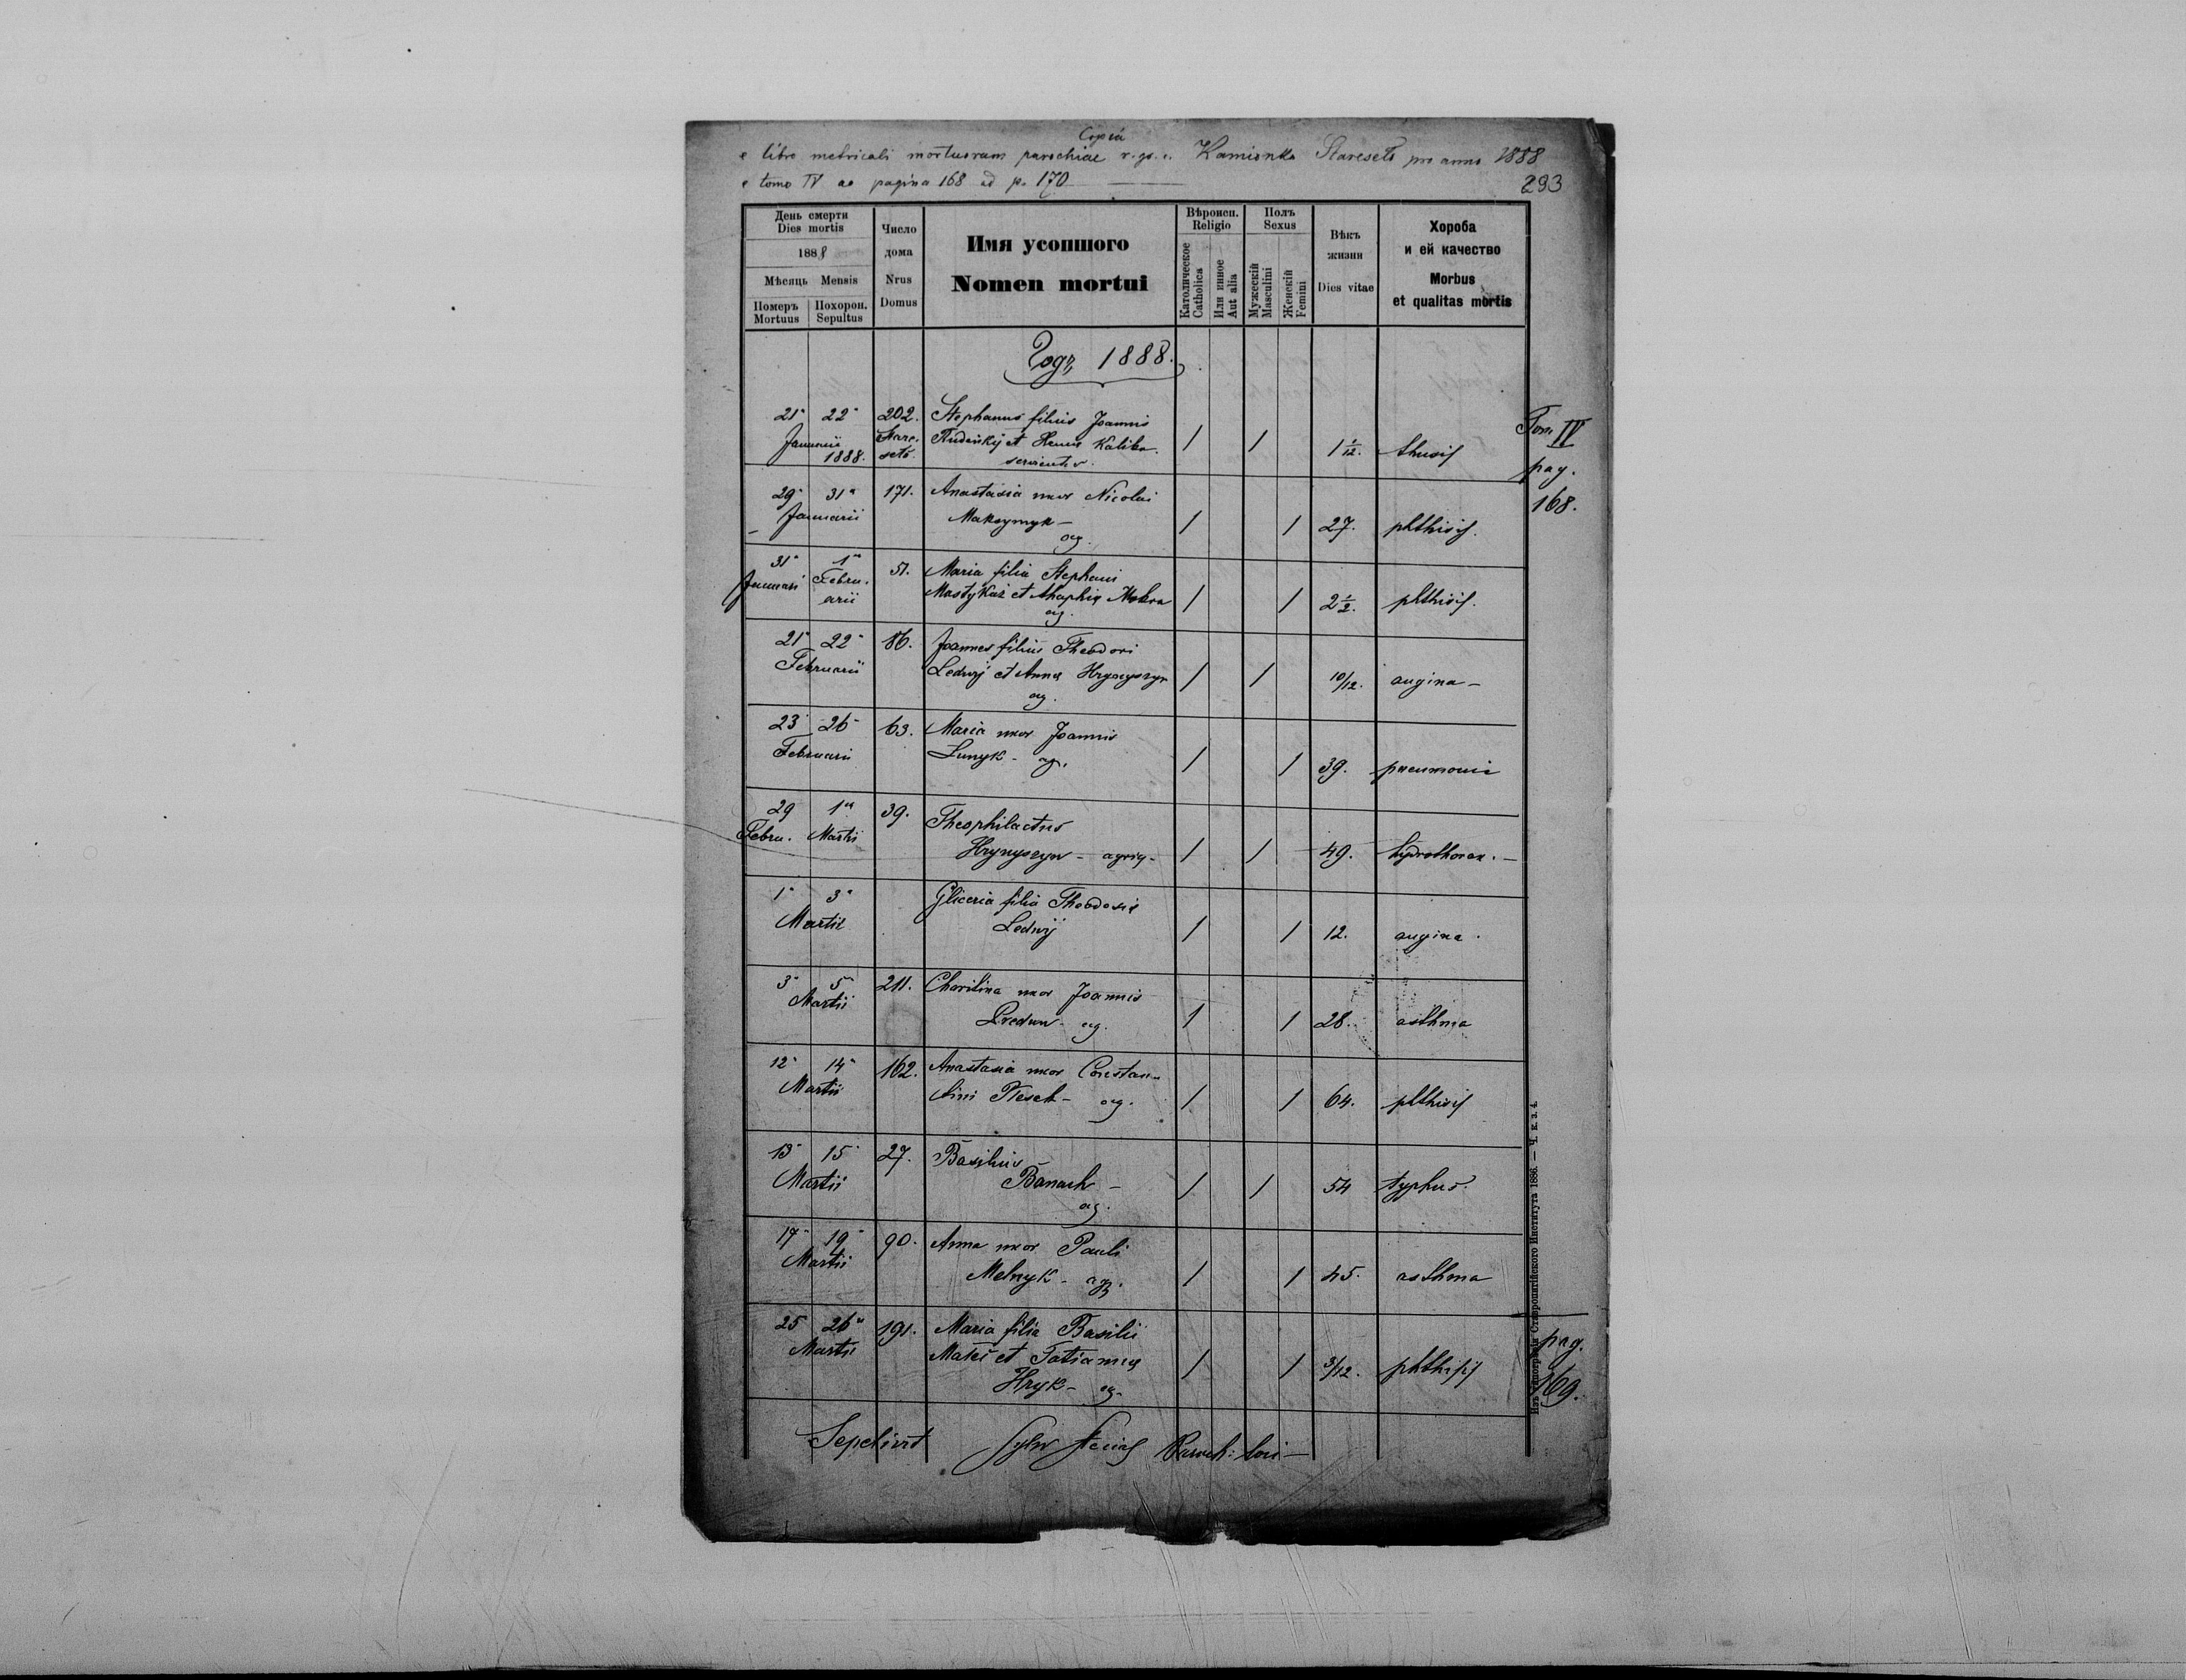 Copia
e libro metricali mortuorum parochiae r. gr. c. Kamionka Staresело pro anno 1888
e tomo IV ac pagina 168 ad p. 170
293
День смерти
Dies mortis
1888
Мѣсяць Mensis
Померъ Mortuus
Похорон. Sepultus
Число дома
Nrus Domus
Имя усопшого
Nomen mortui
Вѣроисп.
Religio
Католическое Catholica
Или инное Aut alia
Полъ
Sexus
Мужескій Masculini
Женскій Femini
Вѣкъ жизни
Dies vitae
Хороба и ей качество
Morbus et qualitas mortis
Годъ 1888.
21 22 202. Stephanus filius Joannis
Januarii Stare- et Kaliba
1888. servientis 1 1 1 1/12.
Tom IV
pag.
168.
29 31 171. Anastasia uxor Nicolai
Januarii Maksymyk –
ag. 1 1 27. phthisis.
31 1 51. Maria filia Stephani
Januari Febru- Mastykaż et Mokra
arii ag. 1 1 2 1/2. phthisis.
21 22 86. Joannes filius Theodori
Februarii Ledwij et Anna Hrynyszyn
ag. 1 1 10/12. angina –
23 26 63. Maria uxor Joannis
Februarii Lunyk – ag. 1 1 39. pneumonia
29 1 39. Theophilactus
Febru. Martii Hrynyszyn – 1 1 49. hydrothorax. –
1 3 Gliceria filia Theodosii
Martii Ledwij 1 1 12. angina.
3 5 211. Charitina uxor Joannis
Martii ag. 1 1 28. asthma
12 14 162. Anastasia uxor Constan-
Martii tini – ag. 1 1 64. phthisis
13 15 27. Basilius
Martii Banach –
ag. 1 1 54 typhus.
17 19 90. Anna uxor Pauli
Martii Melnyk – ag. 1 1 45. asthma
25 26 191. Maria filia Basilii
Martii et Tatianna
Hryk – ag. 1 1 3/12. phthisis
pag.
169.
Sepelivit Paroch: loci –
Изъ типографіи Ставропигійского Института 1886. — Ч. к. з. 4.